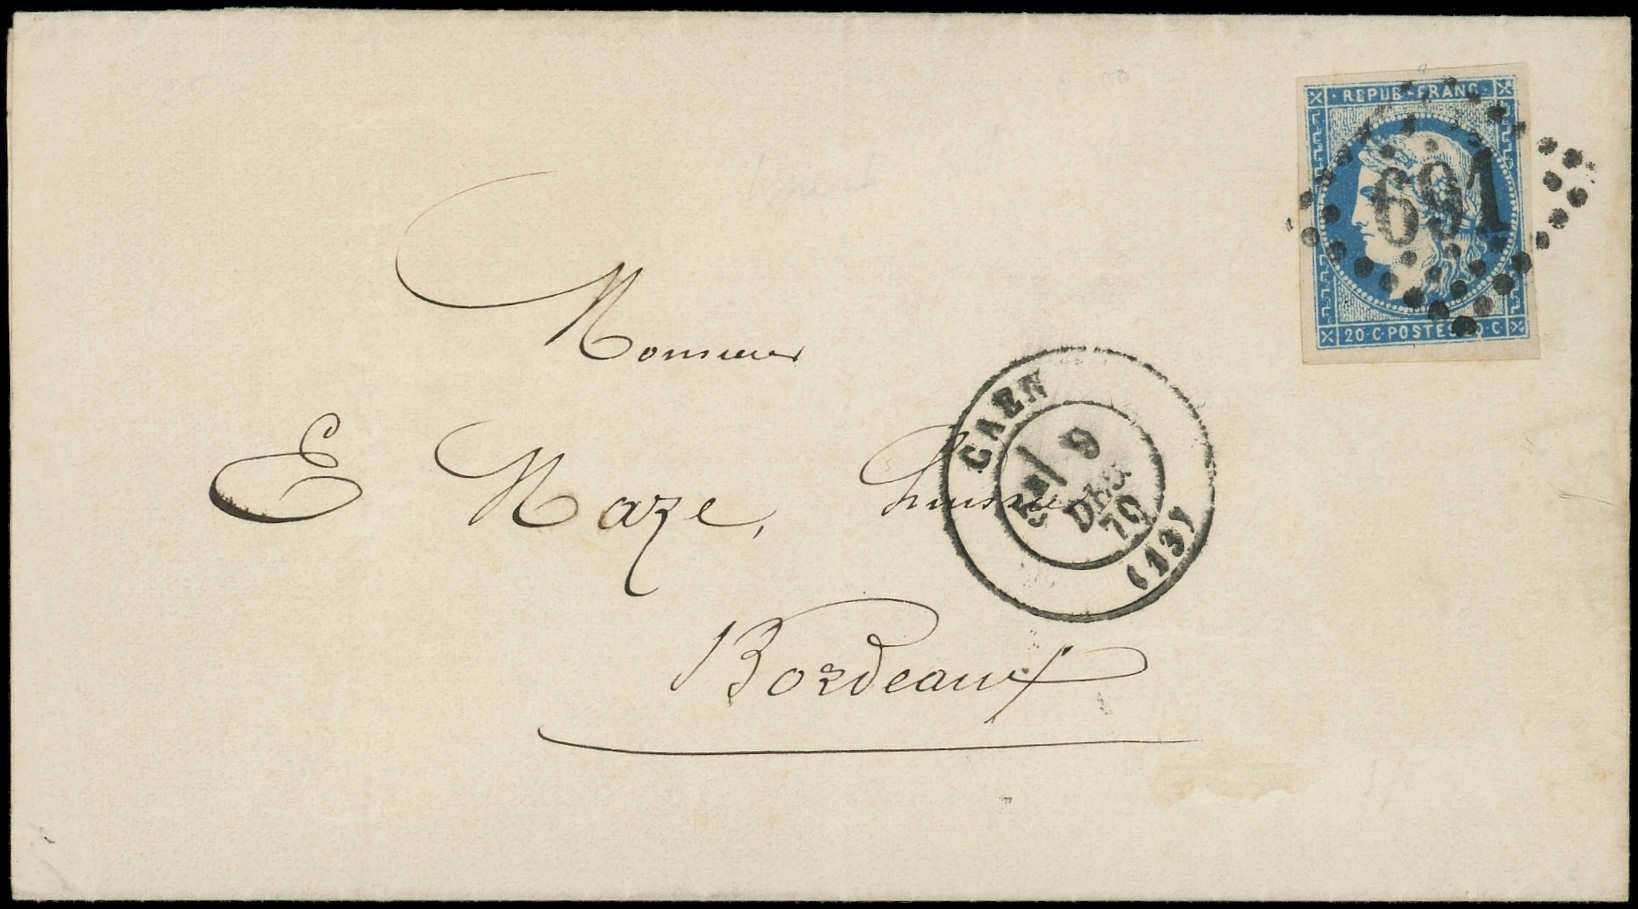 REPUB·FRANC·
691
20·C·POSTES·20·C
Monsieur
E Maze, huissier
Bordeaux
CAEN
9
DEC
70
(13)